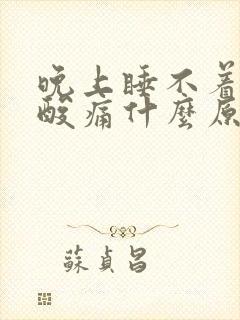 晚上睡不着
酸痛什麼原
蘇貞昌